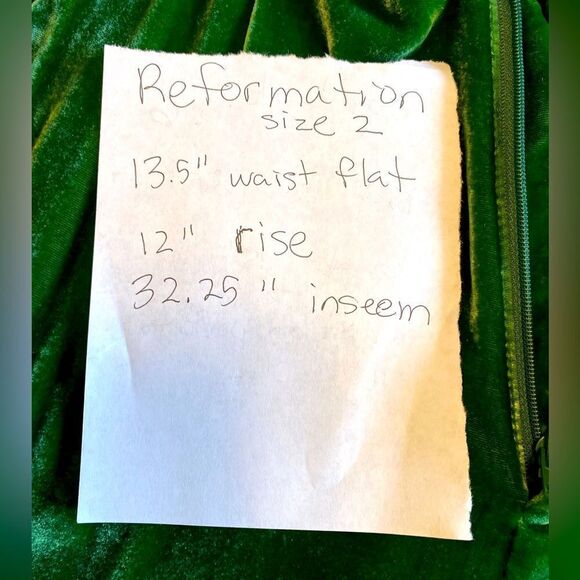 Reformation
size 2
13.5" waist flat
12" rise
32.25" inseem